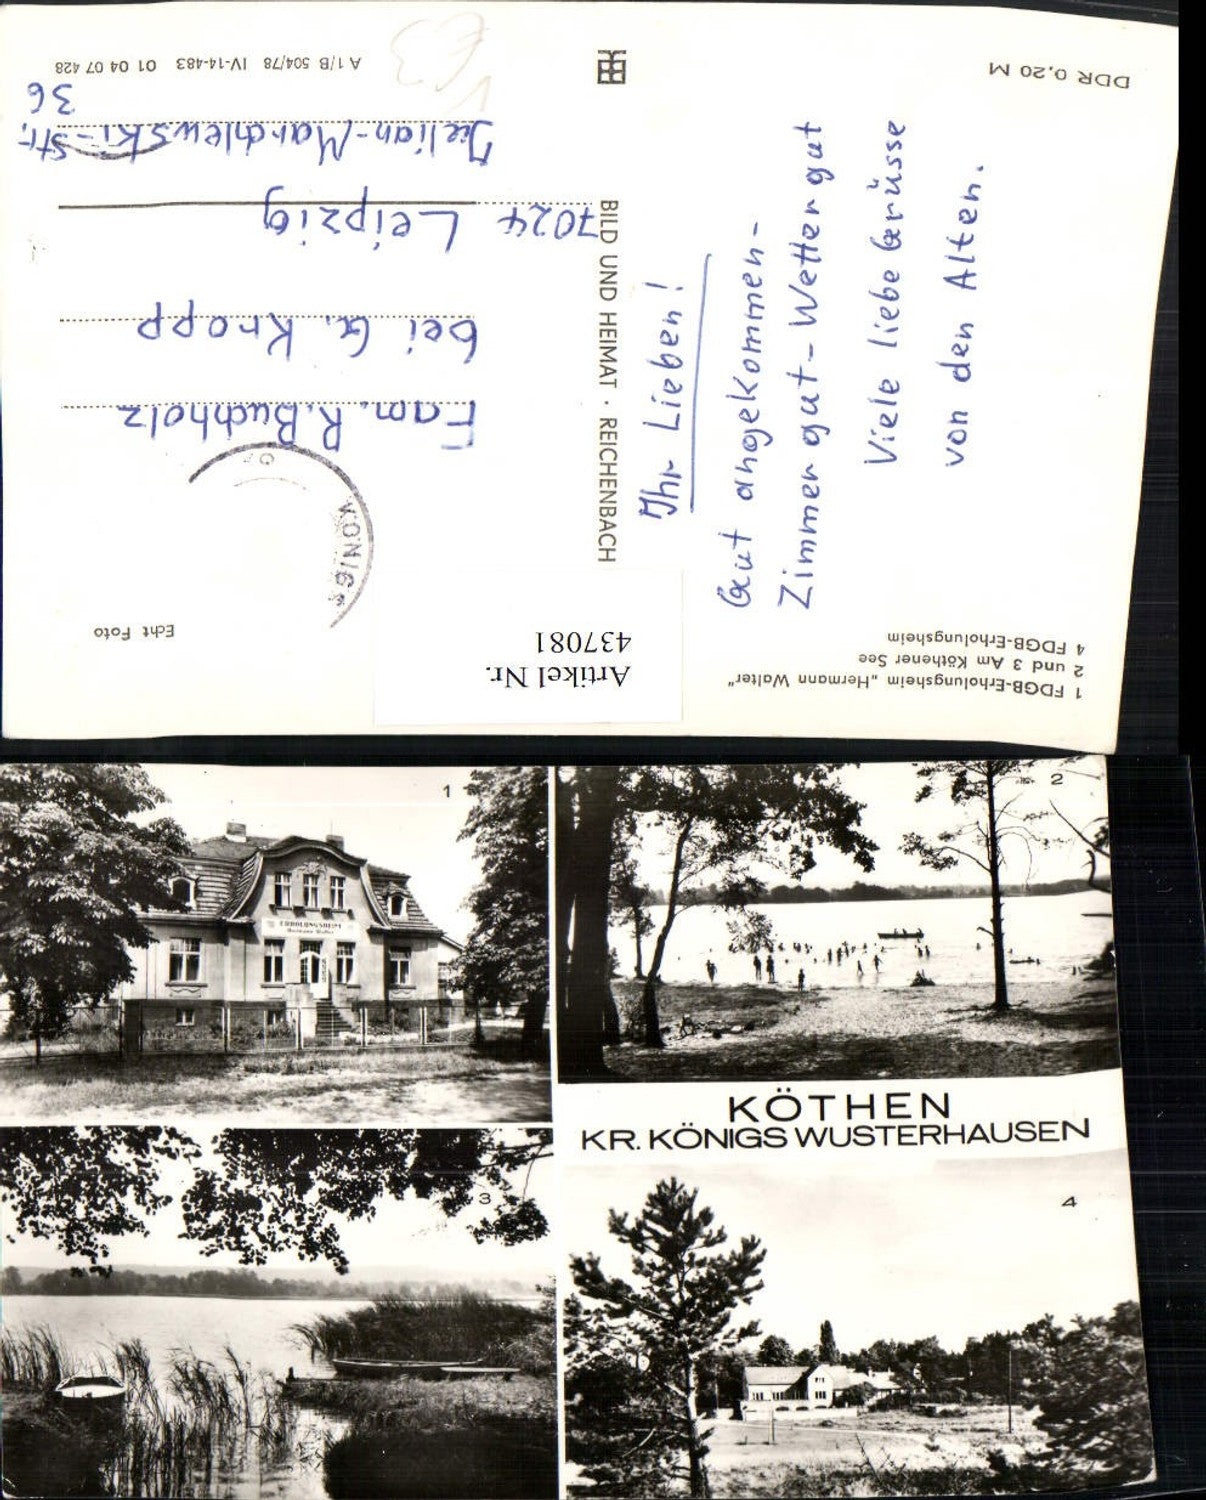 DDR 0,20 M
A 1/B 504/78 IV-14-483 01 04 07 428
1 FDGB-Erholungsheim „Hermann Walter"
2 und 3 Am Köthener See
4 FDGB-Erholungsheim
Ihr Lieben!
Gut angekommen-
Zimmer gut - Wetter gut
Viele liebe Grüsse
von den Alten.
BILD UND HEIMAT · REICHENBACH
Echt Foto
KÖNIGS
Fam. R. Buchholz
bei G. Kropp
7024 Leipzig
Julian-Marchlewski-Str.
36
Artikel Nr.
437081
1
ERHOLUNGSHEIM
Hermann Walter
2
KÖTHEN
KR. KÖNIGS WUSTERHAUSEN
3
4